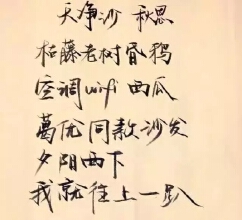 天净沙 秋思
枯藤老树昏鸦
空调wifi西瓜
葛优同款沙发
夕阳西下
我就往上一趴